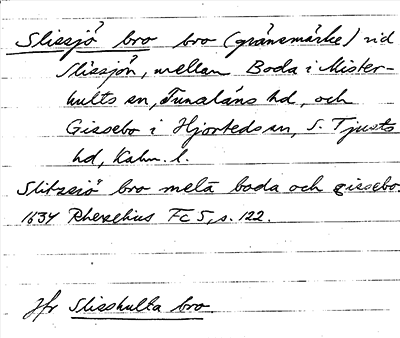 Slissjö bro bro (gränsmärke) vid
Slissjön, mellan Boda i Mister-
hults sn, Tunaläns hd, och
Gissebo i Hjorteds sn, S. Tjusts
hd, Kalm. l.
Slitzsiö bro melã boda och gissebo.
1634 Rhezelius Fc 5, s. 122.
Jfr Slisshulta bro.